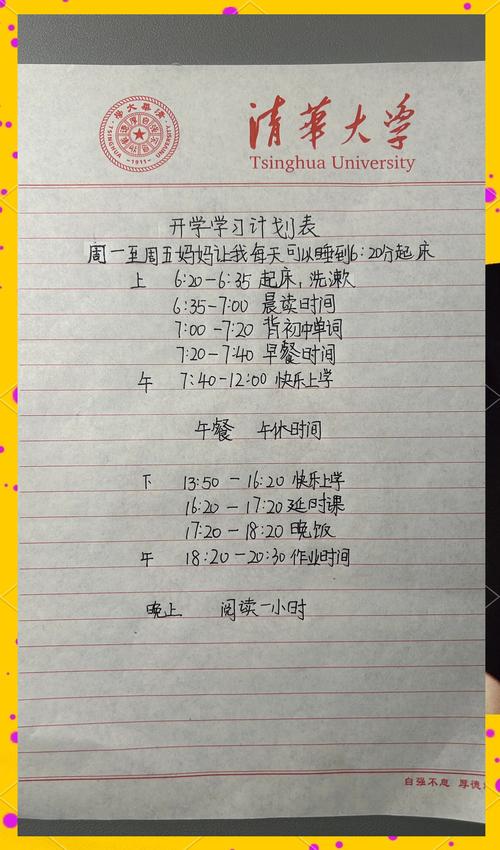 清華大學
TSINGHUA UNIVERSITY
-1911-
清華大学
Tsinghua University
开学学习计划表
周一至周五妈妈让我每天可以睡到6:20分起床
上 6:20-6:35 起床,洗漱
6:35-7:00 晨读时间
7:00-7:20 背初中单词
7:20-7:40 早餐时间
午 7:40-12:00 快乐上学
午餐 午休时间
下 13:50-16:20 快乐上学
16:20-17:20 延时课
17:20-18:20 晚饭
午 18:20-20:30 作业时间
晚上 阅读一小时
自强不息 厚德